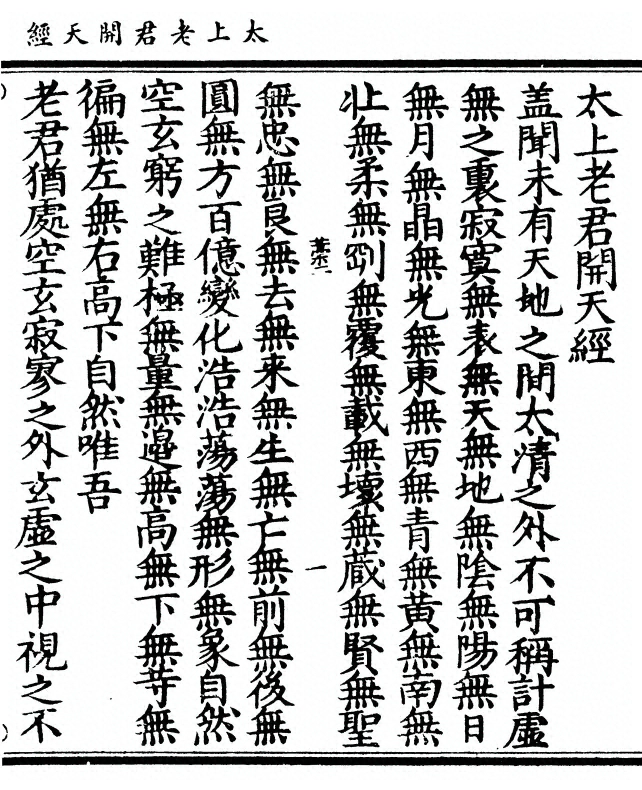 太上老君開天經
太上老君開天經
盖聞未有天地之間太清之外不可稱計虛
無之裏寂寞無表無天無地無陰無陽無日
無月無晶無光無東無西無青無黃無南無
北無柔無剛無覆無載無壞無蔵無賢無聖
無忠無良無去無來無生無亡無前無後無
圓無方百億變化浩浩蕩蕩無形無象自然
空玄窮之難極無量無邉無高無下無等無
徧無左無右高下自然唯吾
老君猶處空玄寂寥之外玄虛之中視之不
一